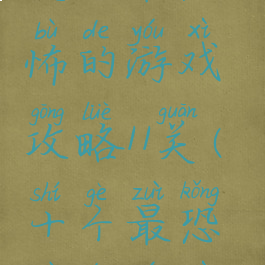 bù de yóu xì
怖的游戏
gōng lüè guān
攻略11关(
shí gè zuì kǒng
十个最恐